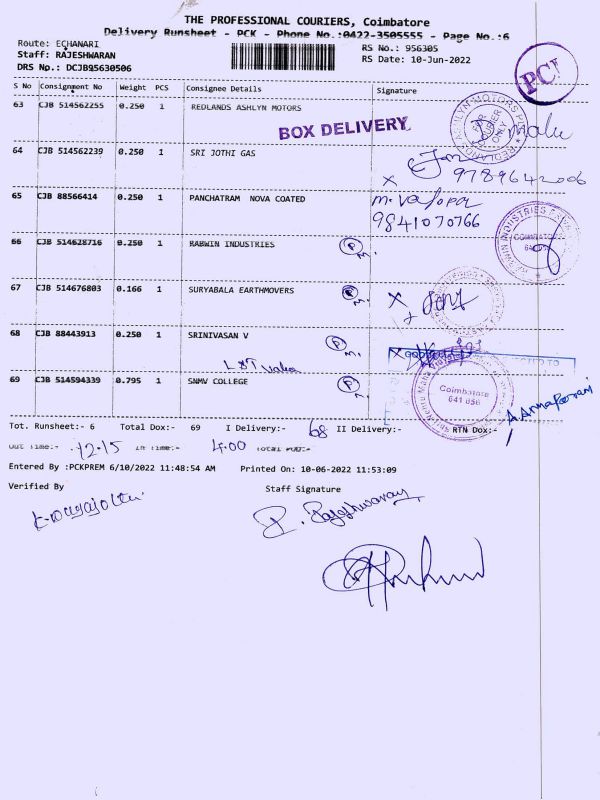 THE PROFESSIONAL COURIERS, Coimbatore
Delivery Runsheet - PCK - Phone No.:0422-3505555 - Page No.:6
Route: ECHANARI
Staff: RAJESHWARAN
DRS No.: DCJB95630506
RS No.: 956305
RS Date: 10-Jun-2022
PCI
S No Consignment No Weight PCS Consignee Details Signature
63 CJB 514562255 0.250 1 REDLANDS ASHLYN MOTORS
BOX DELIVERY
64 CJB 514562239 0.250 1 SRI JOTHI GAS
9789642006
65 CJB 88566414 0.250 1 PANCHATRAM NOVA COATED
9841070766
66 CJB 514628716 0.250 1 RABWIN INDUSTRIES
67 CJB 514676803 0.166 1 SURYABALA EARTHMOVERS
68 CJB 88443913 0.250 1 SRINIVASAN V
69 CJB 514594339 0.795 1 SNMV COLLEGE
Coimbatore
641 050
Tot. Runsheet:- 6 Total Dox:- 69 I Delivery:- 68 II Delivery:- RTN Dox:-
Out Time:- 12.15 In Time:- 4.00 Total POD:-
Entered By :PCKPREM 6/10/2022 11:48:54 AM Printed On: 10-06-2022 11:53:09
Verified By Staff Signature
R. Rajeshwaran